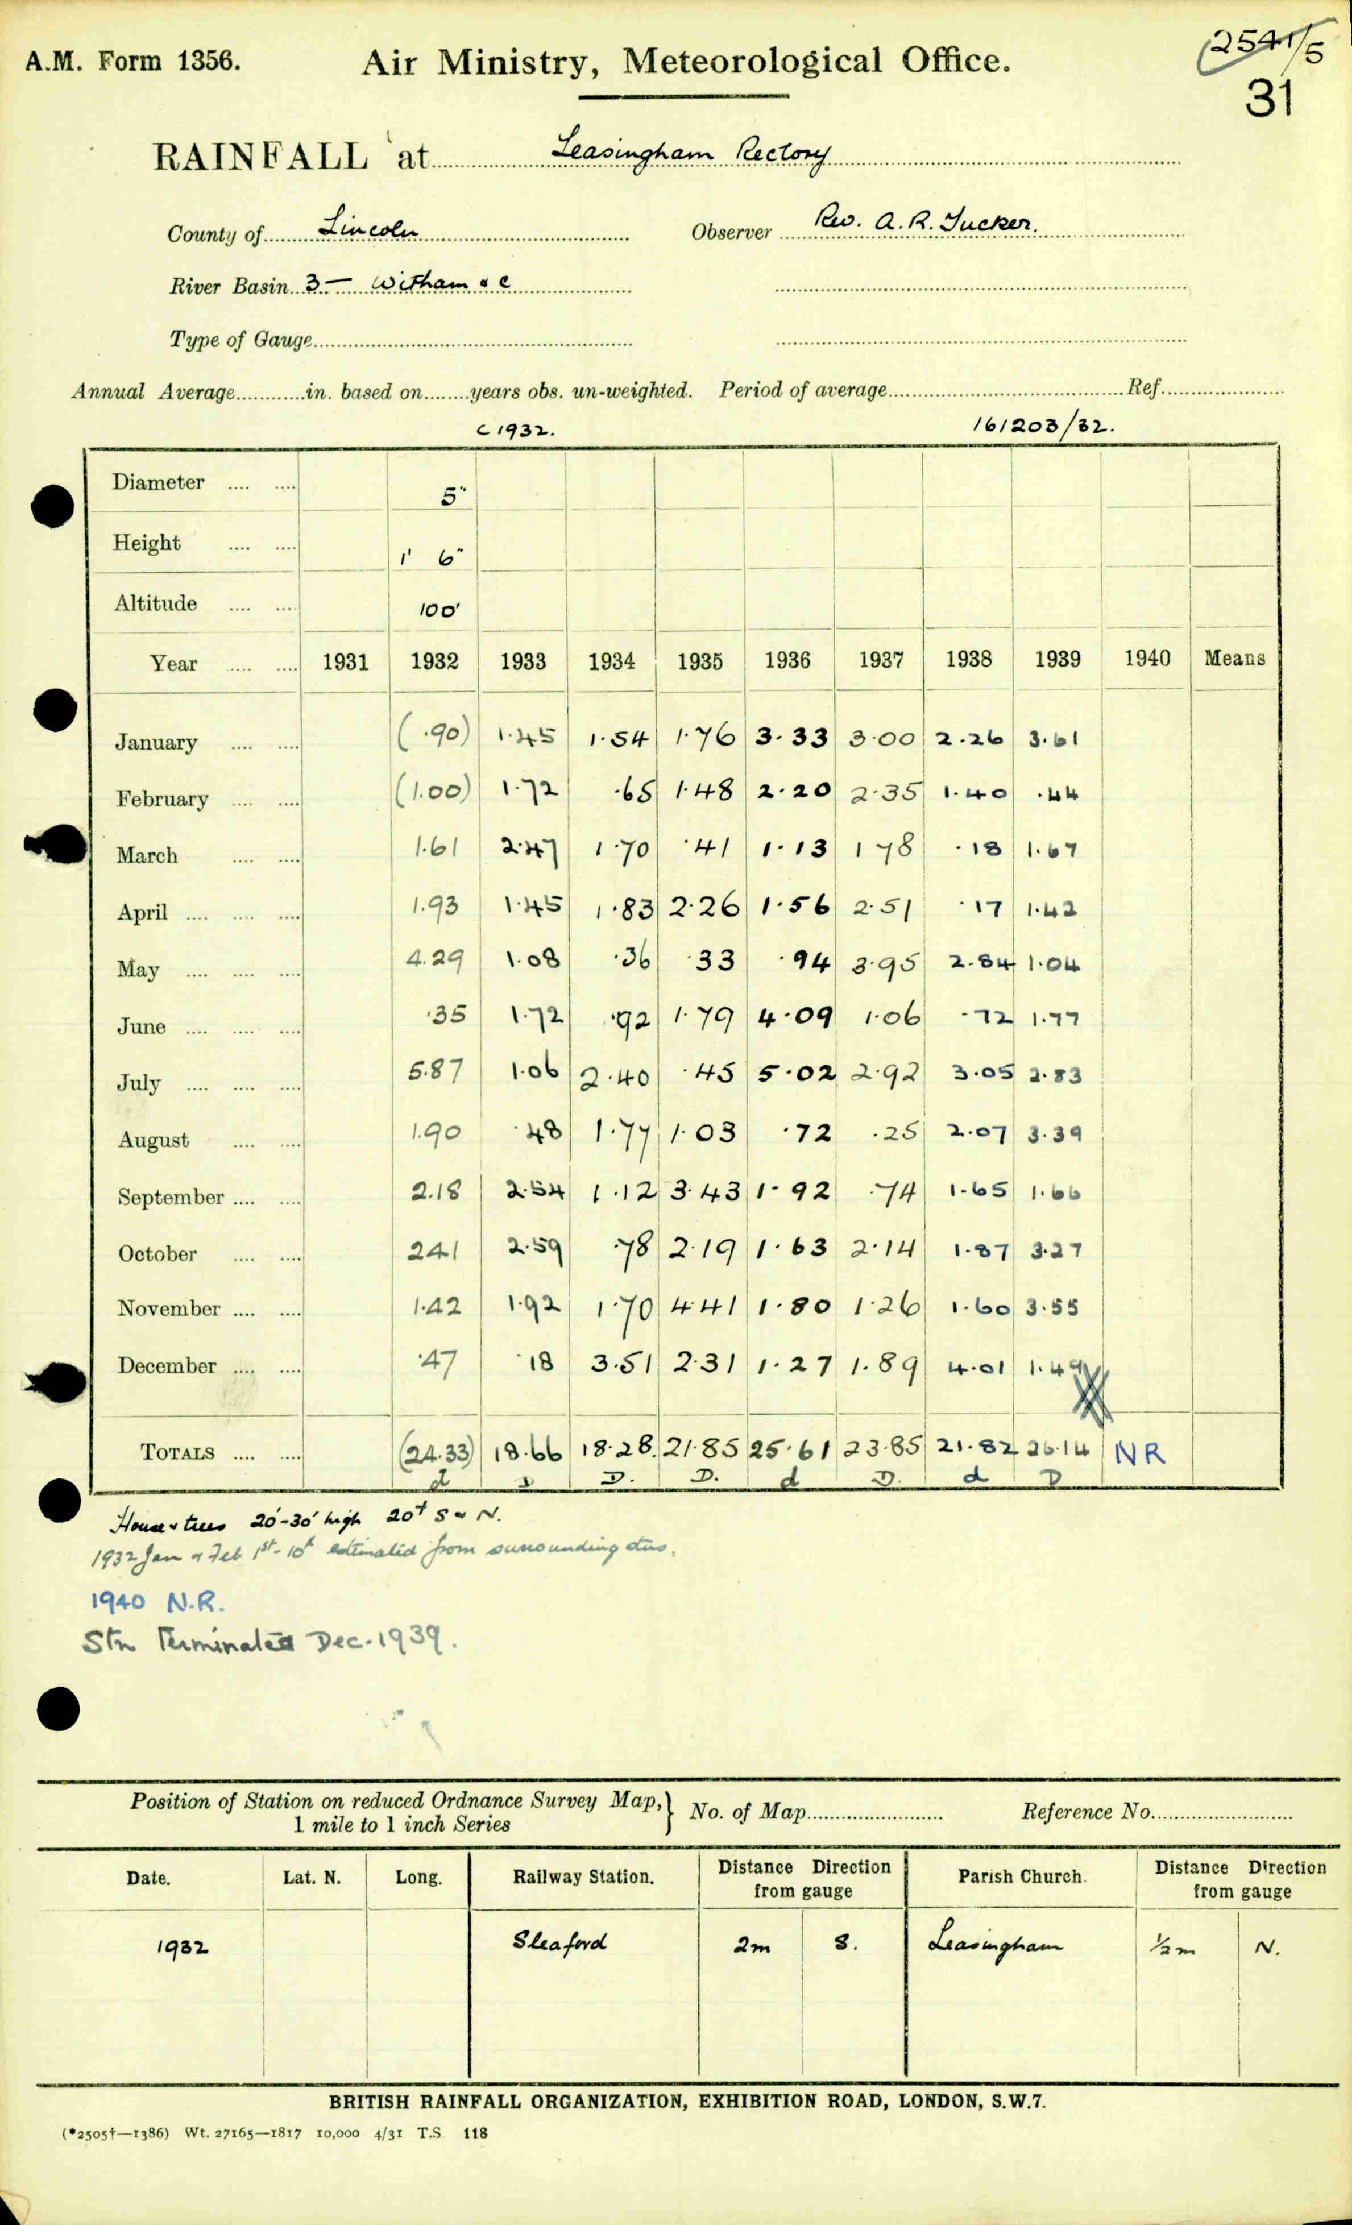 A.M. Form 1356.
Air Ministry, Meteorological Office.
2541/5
31
RAINFALL at Leasingham Rectory
County of Lincoln Observer Rev. A. R. Tucker.
River Basin 3 — Witham & c
Type of Gauge
Annual Average in. based on years obs. un-weighted. Period of average Ref.
C 1932. 161203/32.
Diameter 5"
Height 1' 6"
Altitude 100'
Year 1931 1932 1933 1934 1935 1936 1937 1938 1939 1940 Means
January (.90) 1.45 1.54 1.76 3.33 3.00 2.26 3.61
February (1.00) 1.72 .65 1.48 2.20 2.35 1.40 .44
March 1.61 2.47 1.70 .41 1.13 1 78 .18 1.67
April 1.93 1.45 1.83 2.26 1.56 2.51 .17 1.42
May 4.29 1.08 .36 .33 .94 3.95 2.84 1.04
June .35 1.72 .92 1.79 4.09 1.06 .72 1.77
July 5.87 1.06 2.40 .45 5.02 2.92 3.05 2.83
August 1.90 .48 1.77 1.03 .72 .25 2.07 3.39
September 2.18 2.54 1.12 3.43 1.92 .74 1.65 1.66
October 2.41 2.59 .78 2.19 1.63 2.14 1.87 3.27
November 1.42 1.92 1.70 4.41 1.80 1.26 1.60 3.55
December .47 .18 3.51 2.31 1.27 1.89 4.01 1.49
TOTALS (24.33) 18.66 18.28 21.85 25.61 23.85 21.82 26.14 NR
d D D. D. d D. d D
House & trees 20'-30' high 20+ S & N.
1932 Jan & Feb 1st-10th estimated from surrounding stns.
1940 N.R.
Stn Terminated Dec. 1939.
Position of Station on reduced Ordnance Survey Map, } No. of Map Reference No.
1 mile to 1 inch Series
Date. Lat. N. Long. Railway Station. Distance Direction from gauge Parish Church. Distance Direction from gauge
1932 Sleaford 2m S. Leasingham ½m N.
BRITISH RAINFALL ORGANIZATION, EXHIBITION ROAD, LONDON, S.W.7.
(*2505†—1386) Wt. 27165—1817 10,000 4/31 T.S. 118